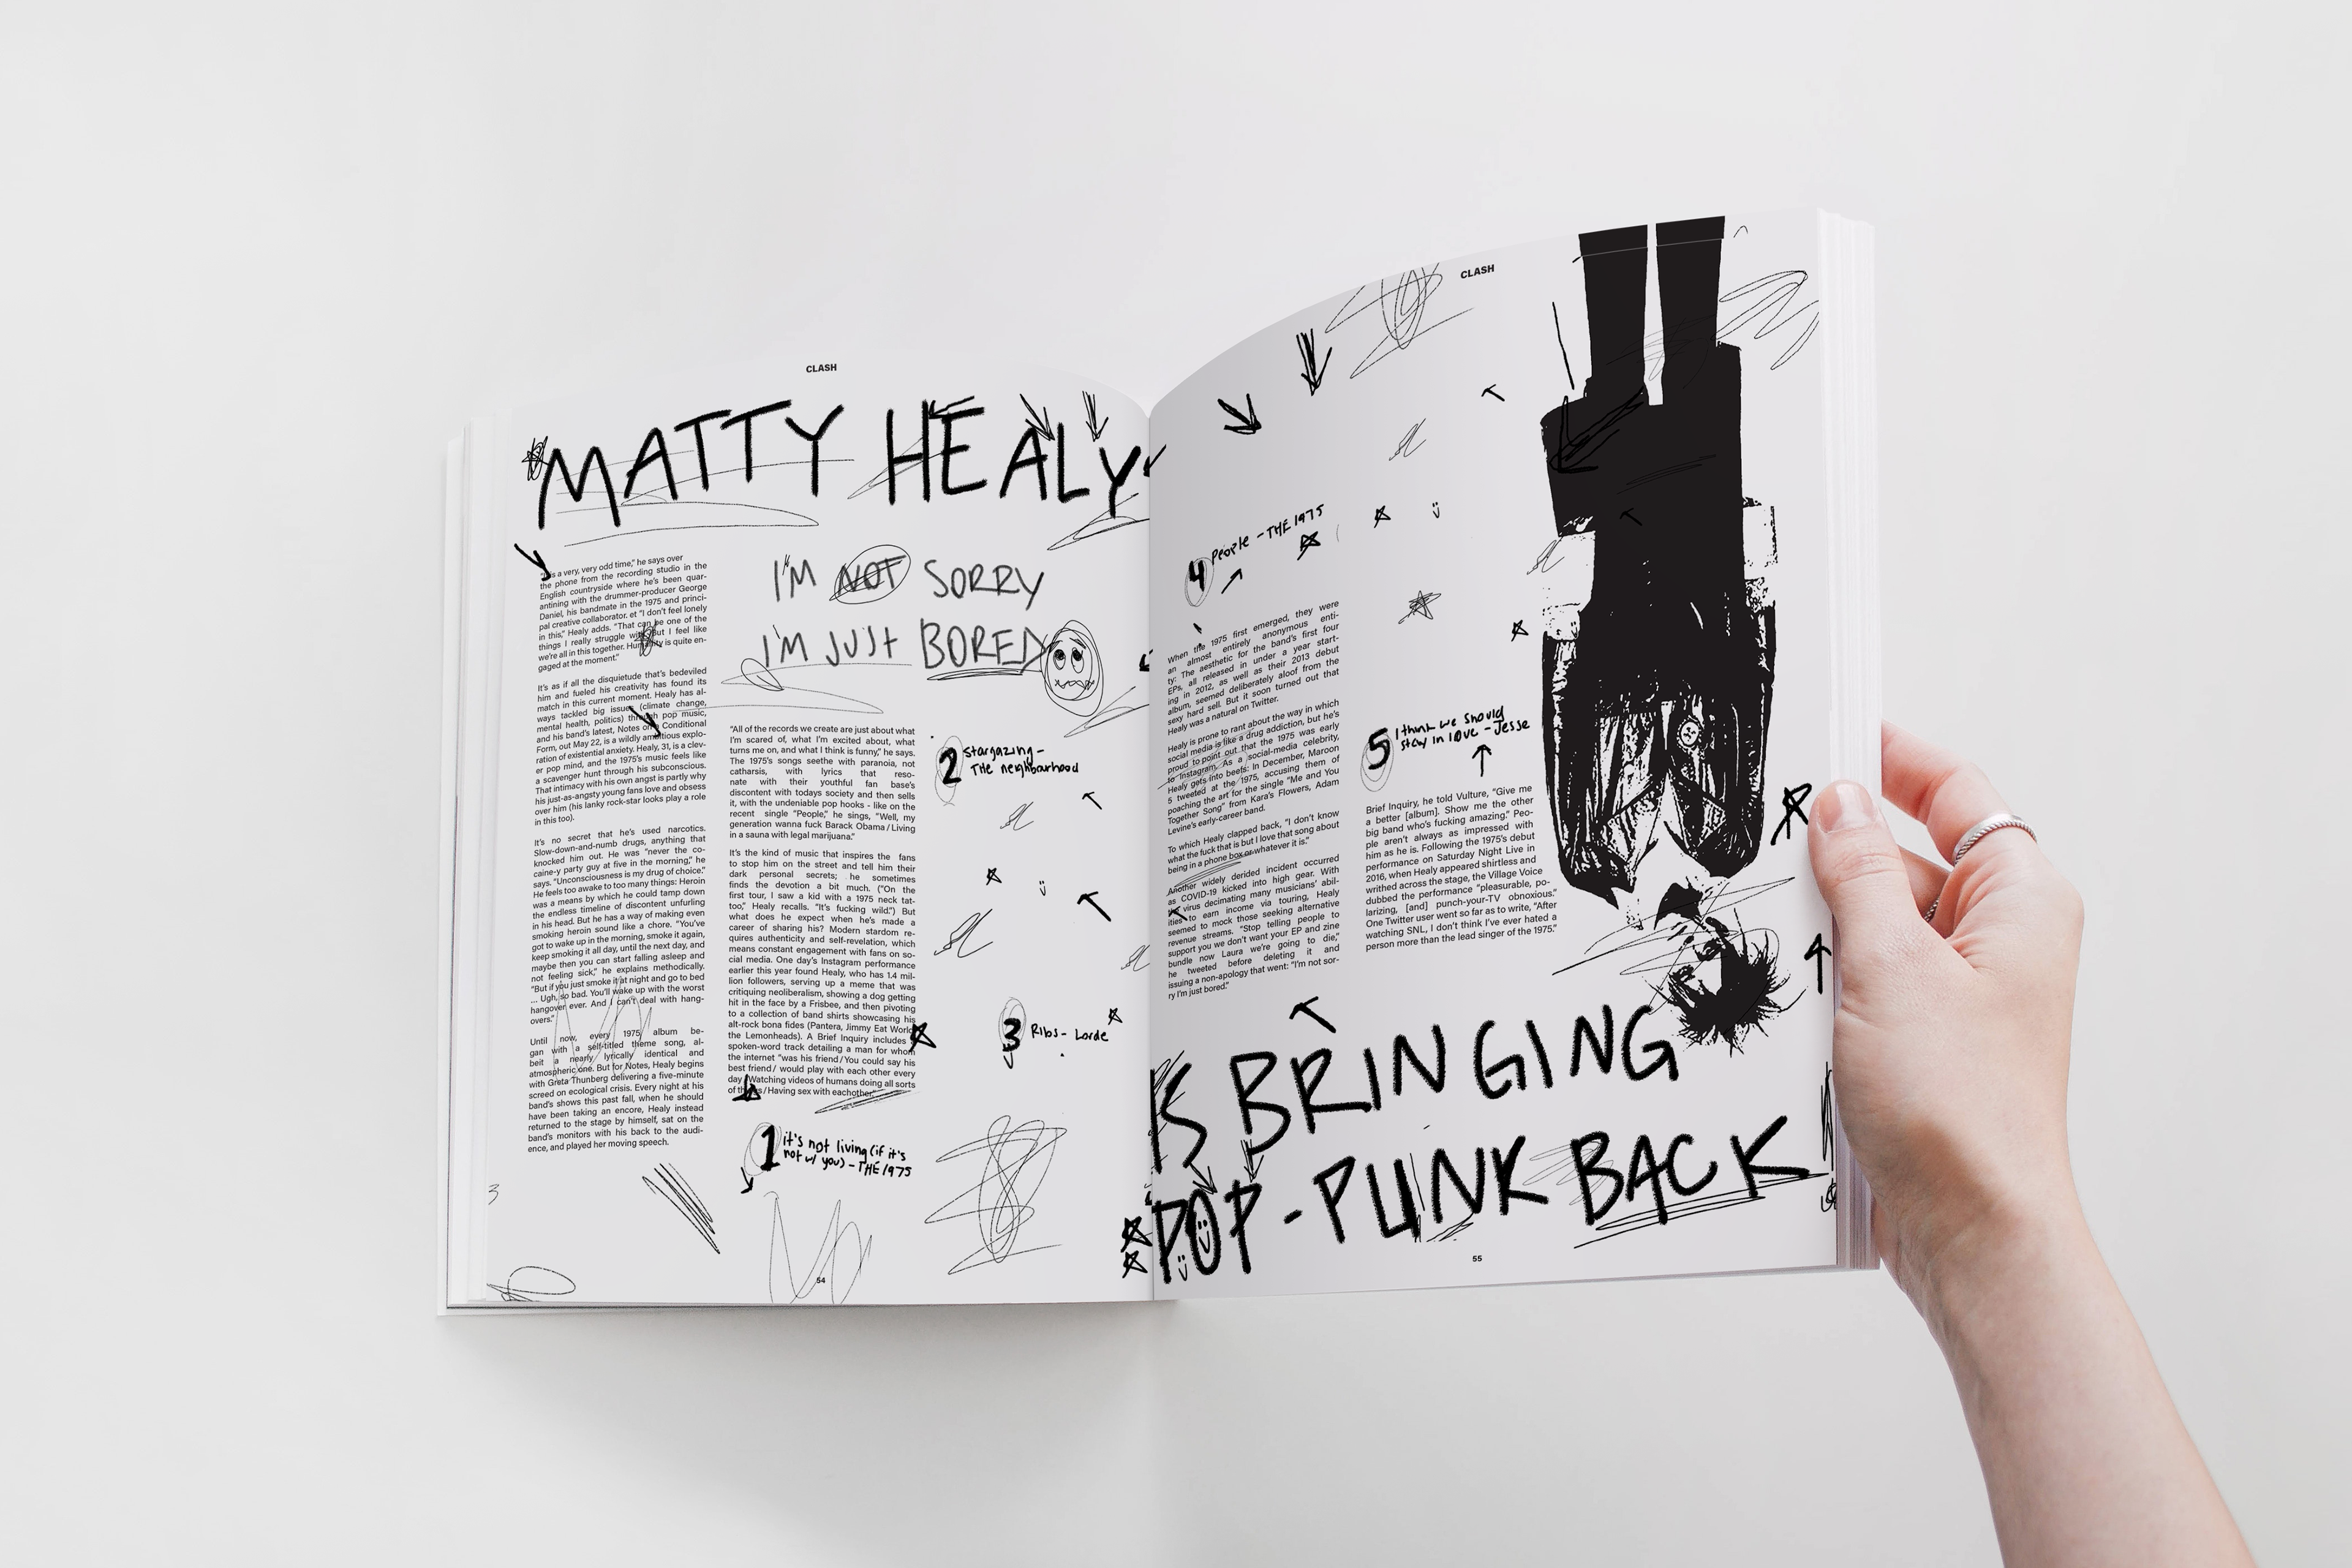 CLASH
MATTY HEALY
"It's a very, very odd time," he says over
the phone from the recording studio in the
English countryside where he's been quar-
antining with the drummer-producer George
Daniel, his bandmate in the 1975 and princi-
pal creative collaborator. et "I don't feel lonely
in this," Healy adds. "That can be one of the
things I really struggle with. But I feel like
we're all in this together. Humanity is quite en-
gaged at the moment."
It's as if all the disquietude that's bedeviled
him and fueled his creativity has found its
match in this current moment. Healy has al-
ways tackled big issues (climate change,
mental health, politics) through pop music,
and his band's latest, Notes on a Conditional
Form, out May 22, is a wildly ambitious explo-
ration of existential anxiety. Healy, 31, is a clev-
er pop mind, and the 1975's music feels like
a scavenger hunt through his subconscious.
That intimacy with his own angst is partly why
his just-as-angsty young fans love and obsess
over him (his lanky rock-star looks play a role
in this too).
It's no secret that he's used narcotics.
Slow-down-and-numb drugs, anything that
knocked him out. He was "never the co-
caine-y party guy at five in the morning," he
says. "Unconsciousness is my drug of choice."
He feels too awake to too many things: Heroin
was a means by which he could tamp down
the endless timeline of discontent unfurling
in his head. But he has a way of making even
smoking heroin sound like a chore. "You've
got to wake up in the morning, smoke it again,
keep smoking it all day, until the next day, and
maybe then you can start falling asleep and
not feeling sick," he explains methodically.
"But if you just smoke it at night and go to bed
... Ugh, so bad. You'll wake up with the worst
hangover ever. And I can't deal with hang-
overs."
Until now, every 1975 album be-
gan with a self-titled theme song, al-
beit a nearly lyrically identical and
atmospheric one. But for Notes, Healy begins
with Greta Thunberg delivering a five-minute
screed on ecological crisis. Every night at his
band's shows this past fall, when he should
have been taking an encore, Healy instead
returned to the stage by himself, sat on the
band's monitors with his back to the audi-
ence, and played her moving speech.
I'M NOT SORRY
I'M JUST BORED
"All of the records we create are just about what
I'm scared of, what I'm excited about, what
turns me on, and what I think is funny," he says.
The 1975's songs seethe with paranoia, not
catharsis, with lyrics that reso-
nate with their youthful fan base's
discontent with todays society and then sells
it, with the undeniable pop hooks - like on the
recent single "People," he sings, "Well, my
generation wanna fuck Barack Obama/Living
in a sauna with legal marijuana."
It's the kind of music that inspires the fans
to stop him on the street and tell him their
dark personal secrets; he sometimes
finds the devotion a bit much. ("On the
first tour, I saw a kid with a 1975 neck tat-
too," Healy recalls. "It's fucking wild.") But
what does he expect when he's made a
career of sharing his? Modern stardom re-
quires authenticity and self-revelation, which
means constant engagement with fans on so-
cial media. One day's Instagram performance
earlier this year found Healy, who has 1.4 mil-
lion followers, serving up a meme that was
critiquing neoliberalism, showing a dog getting
hit in the face by a Frisbee, and then pivoting
to a collection of band shirts showcasing his
alt-rock bona fides (Pantera, Jimmy Eat World,
the Lemonheads). A Brief Inquiry includes a
spoken-word track detailing a man for whom
the internet "was his friend/You could say his
best friend/ would play with each other every
day/Watching videos of humans doing all sorts
of things/Having sex with eachother."
1 it's not living (if it's
not w/ you) - THE 1975
2 stargazing -
The neighbourhood
3 Ribs - Lorde
54
CLASH
4 People - THE 1975
When the 1975 first emerged, they were
an almost entirely anonymous enti-
ty: The aesthetic for the band's first four
EPs, all released in under a year start-
ing in 2012, as well as their 2013 debut
album, seemed deliberately aloof from the
sexy hard sell. But it soon turned out that
Healy was a natural on Twitter.
Healy is prone to rant about the way in which
social media is like a drug addiction, but he's
proud to point out that the 1975 was early
to Instagram. As a social-media celebrity,
Healy gets into beefs: In December, Maroon
5 tweeted at the 1975, accusing them of
poaching the art for the single "Me and You
Together Song" from Kara's Flowers, Adam
Levine's early-career band.
To which Healy clapped back, "I don't know
what the fuck that is but I love that song about
being in a phone box or whatever it is."
Another widely derided incident occurred
as COVID-19 kicked into high gear. With
virus decimating many musicians' abil-
ities to earn income via touring, Healy
seemed to mock those seeking alternative
revenue streams. "Stop telling people to
support you we don't want your EP and zine
bundle now Laura we're going to die,"
he tweeted before deleting it and
issuing a non-apology that went: "I'm not sor-
ry I'm just bored."
5 I think we should
stay in love - Jesse
Brief Inquiry, he told Vulture, "Give me
a better [album]. Show me the other
big band who's fucking amazing." Peo-
ple aren't always as impressed with
him as he is. Following the 1975's debut
performance on Saturday Night Live in
2016, when Healy appeared shirtless and
writhed across the stage, the Village Voice
dubbed the performance "pleasurable, po-
larizing, [and] punch-your-TV obnoxious."
One Twitter user went so far as to write, "After
watching SNL, I don't think I've ever hated a
person more than the lead singer of the 1975."
IS BRINGING
POP-PUNK BACK
55